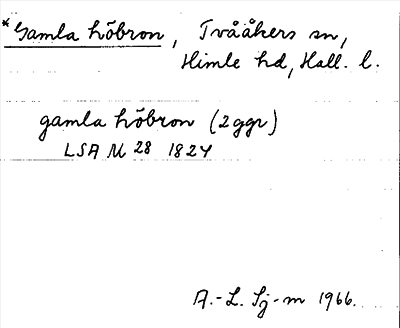 * Gamla hõbron, Tvååkers sn,
Himle hd, Hall. l.
gamla hõbron (2 ggr)
LSA M 28 1824
A.-L. Sj-m 1966.